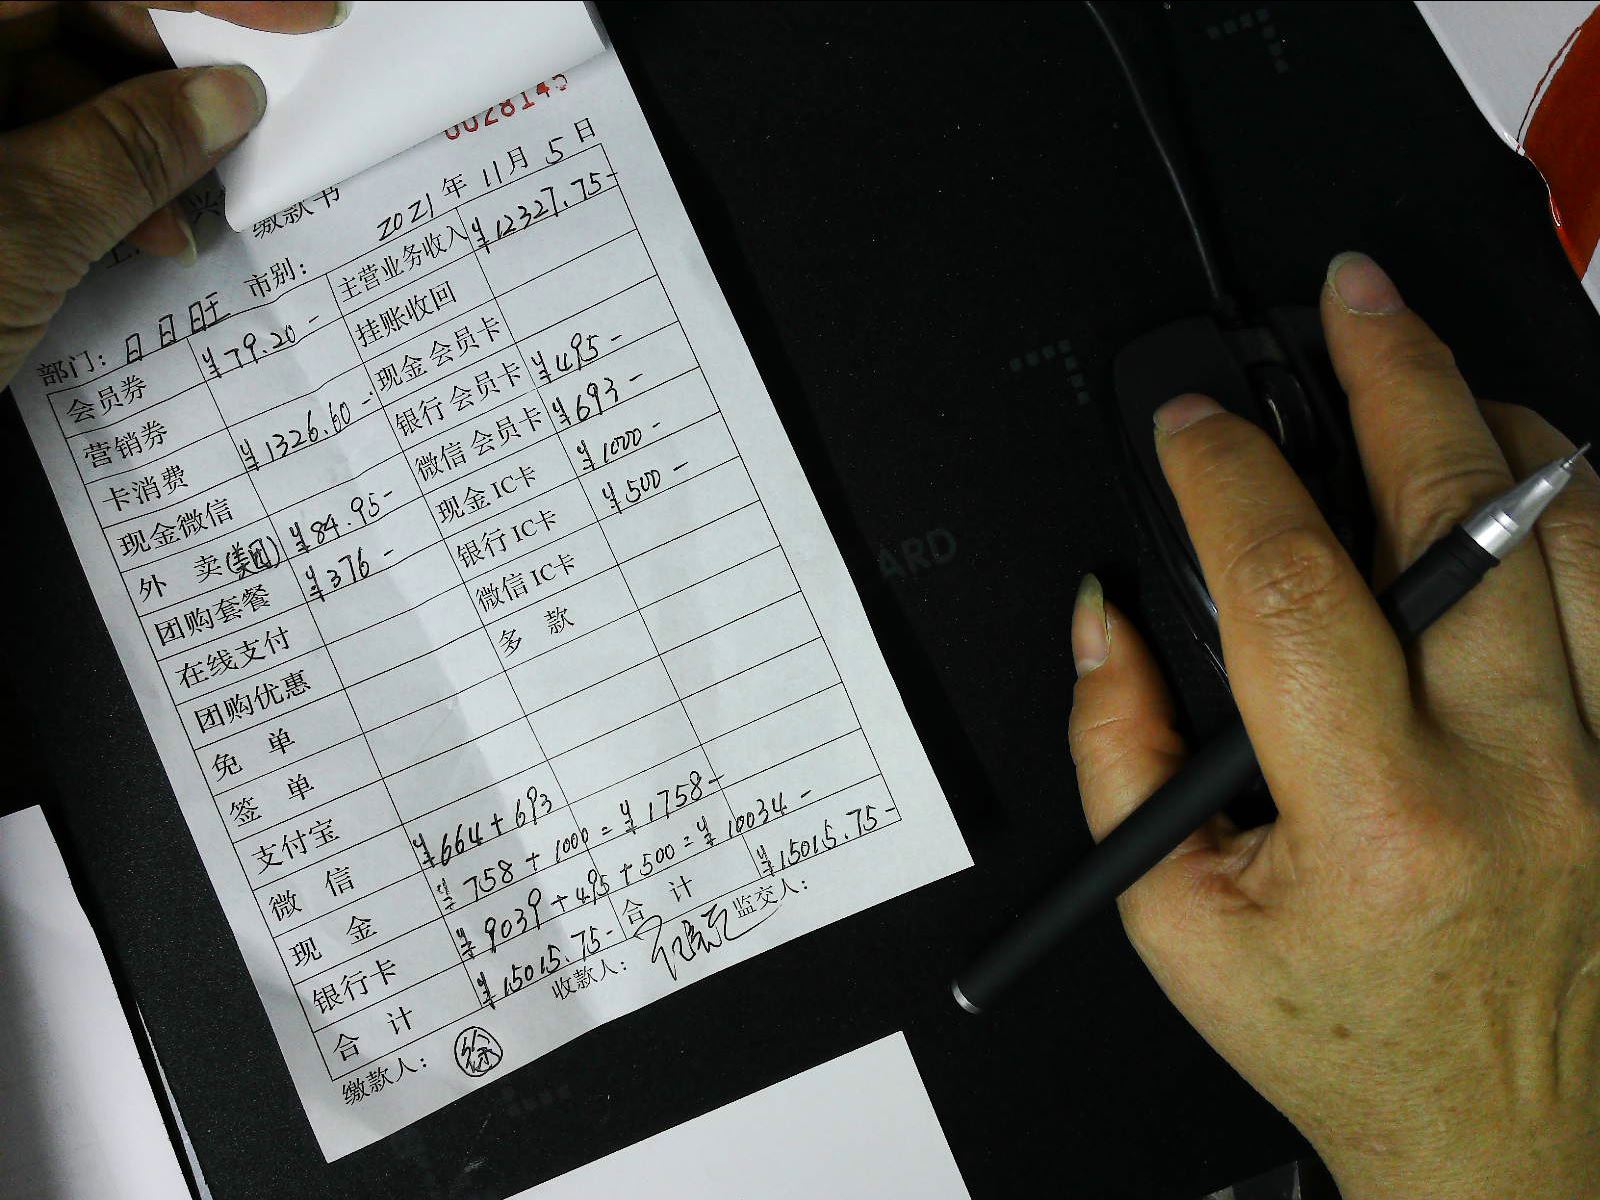 0028145
缴款书
2021年 11月 5日
部门: 日日旺 市别:
会员券 ¥79.20- 主营业务收入 ¥12327.75-
营销券 挂账收回
卡消费 ¥1326.60- 现金会员卡
现金微信 银行会员卡 ¥495-
外 卖(美团) ¥84.95- 微信会员卡 ¥693-
团购套餐 ¥376- 现金IC卡 ¥1000-
在线支付 银行IC卡 ¥500-
团购优惠 微信IC卡
免 单 多 款
签 单
支付宝
微 信 ¥664+693
现 金 ¥758+1000=¥1758-
银行卡 ¥9039+495+500=¥10034-
合 计 ¥15015.75- 合 计 ¥15015.75-
缴款人: 徐 收款人: 监交人:
ARD